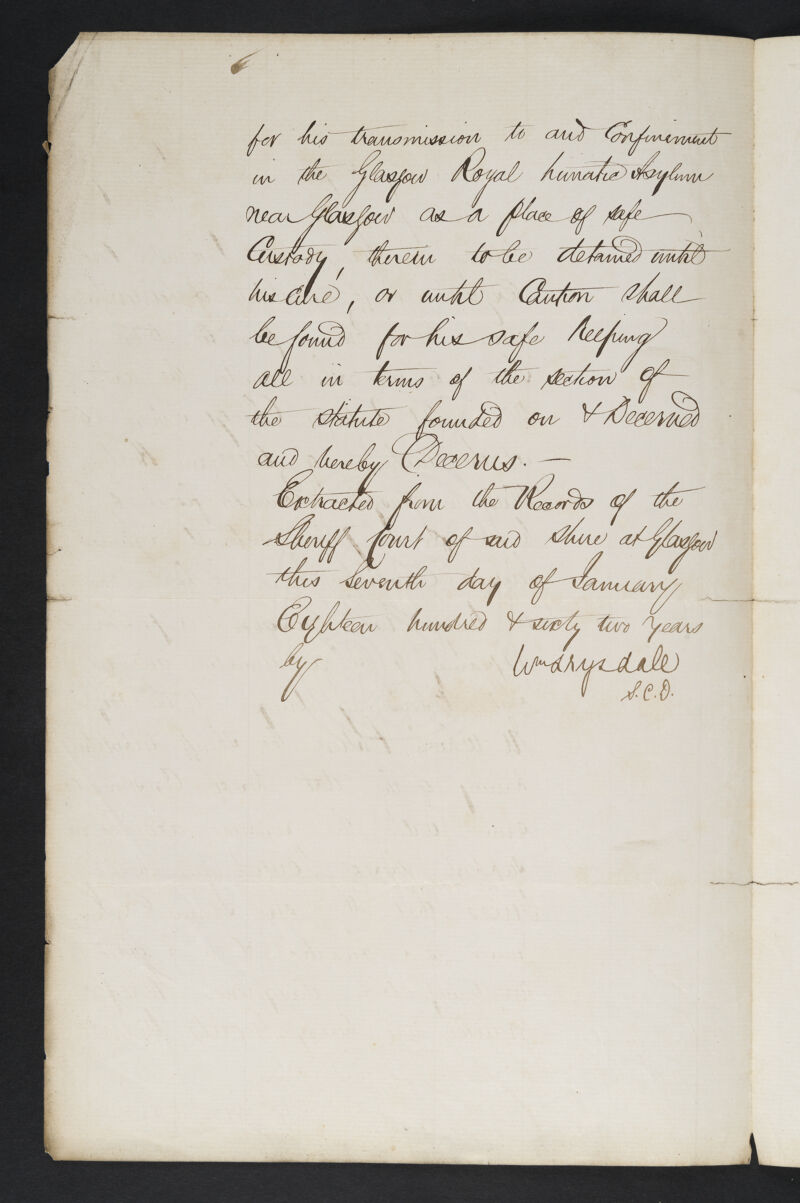 for his transmission to and Confinement
in the Glasgow Royal Lunatic Asylum
near Glasgow as a place of safe
Custody, therein to be detained until
his Cure, or until Caution shall
be found for his safe keeping
all in terms of the section of
the statute founded on & Decerned
and hereby Decerns. —
Extracted from the Records of the
Sheriff Court of said Shire at Glasgow
this Seventh day of January
Eighteen hundred & sixty two years
by Wm Drysdale
S.C.D.